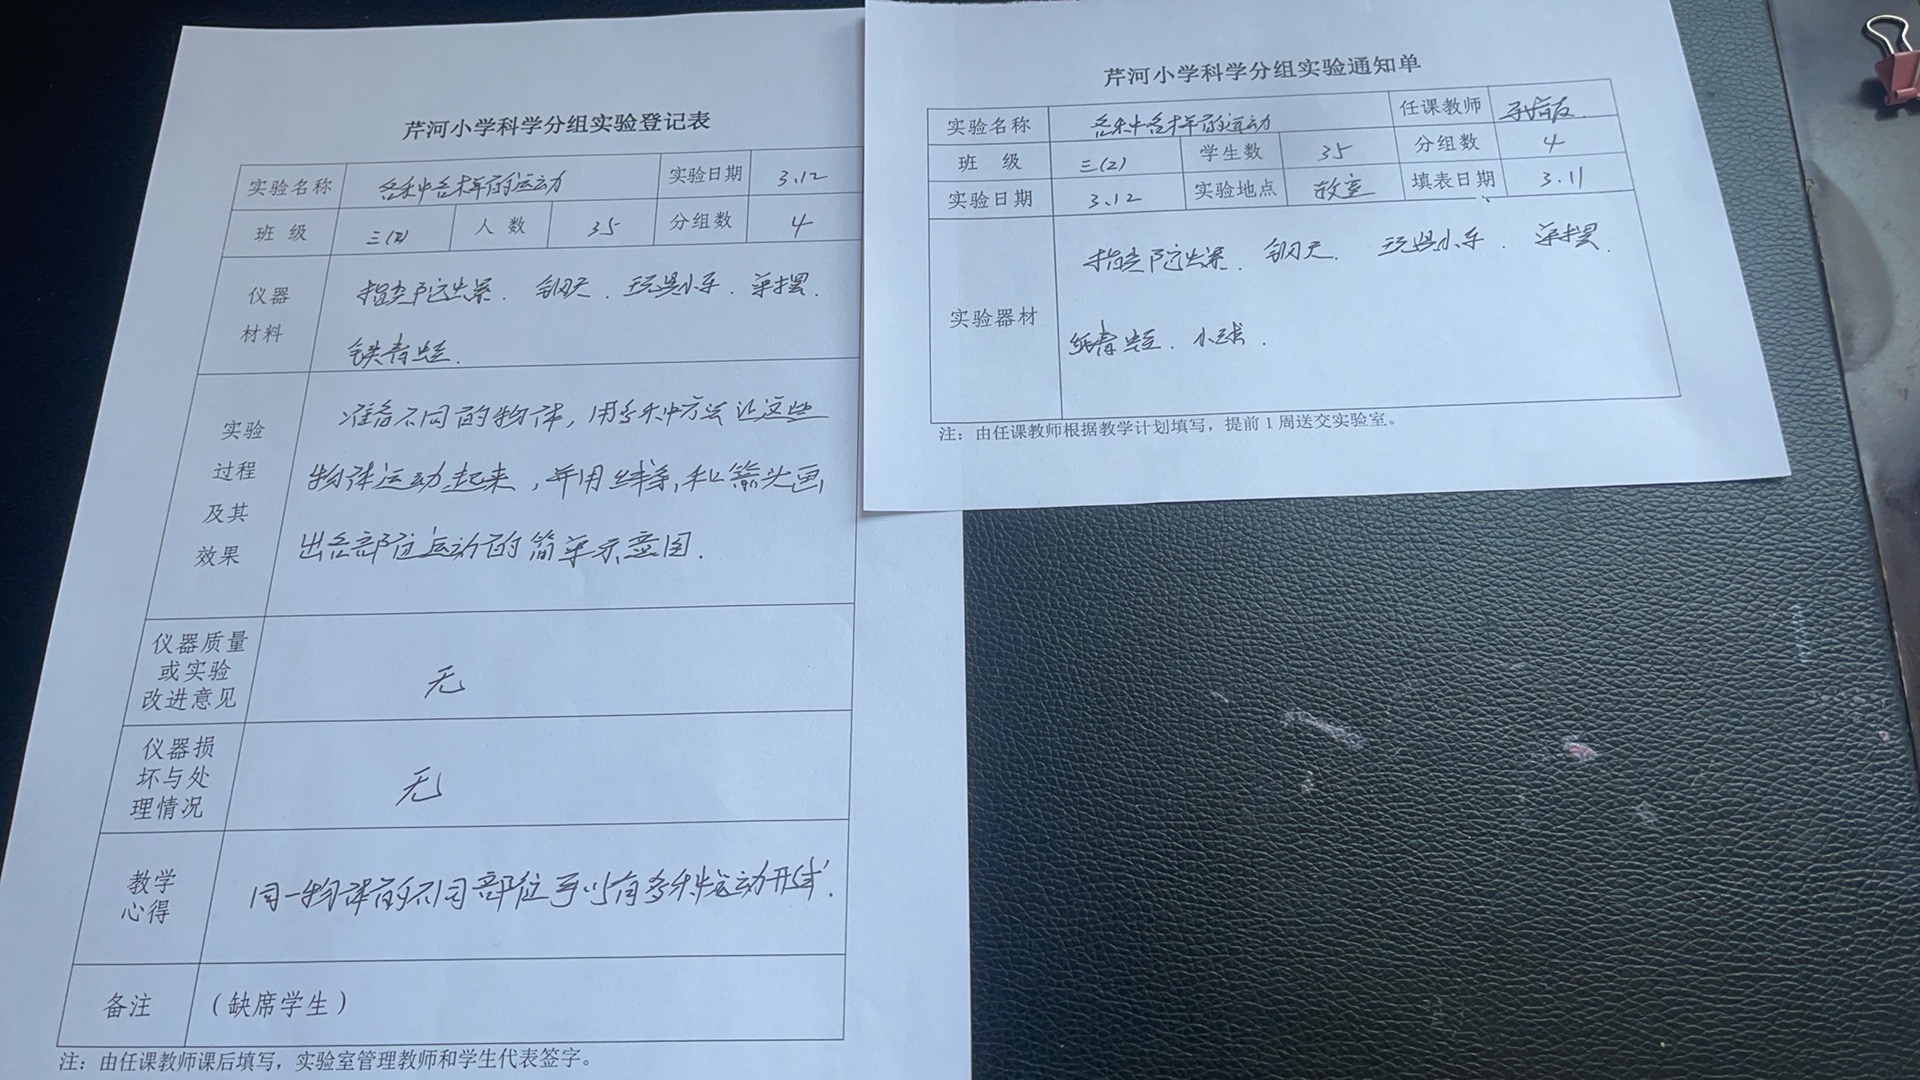 芹河小学科学分组实验登记表
实验名称 各种各样的运动 实验日期 3.12
班 级 三(2) 人 数 35 分组数 4
仪器
材料
指尖陀螺. 钢尺. 玩具小车. 单摆.
铁青蛙.
实验
过程
及其
效果
准备不同的物体,用多种方法让这些
物体运动起来,并用线条和箭头画
出各部位运动的简单示意图.
仪器质量
或实验
改进意见
无
仪器损
坏与处
理情况
无
教学
心得
同一物体的不同部位可以有多种运动形式.
备注 (缺席学生)
注:由任课教师课后填写,实验室管理教师和学生代表签字。
芹河小学科学分组实验通知单
实验名称 各种各样的运动 任课教师
班 级 三(2) 学生数 35 分组数 4
实验日期 3.12 实验地点 教室 填表日期 3.11
实验器材
指尖陀螺. 钢尺. 玩具小车. 单摆.
铁青蛙. 小球.
注:由任课教师根据教学计划填写,提前1周送交实验室。